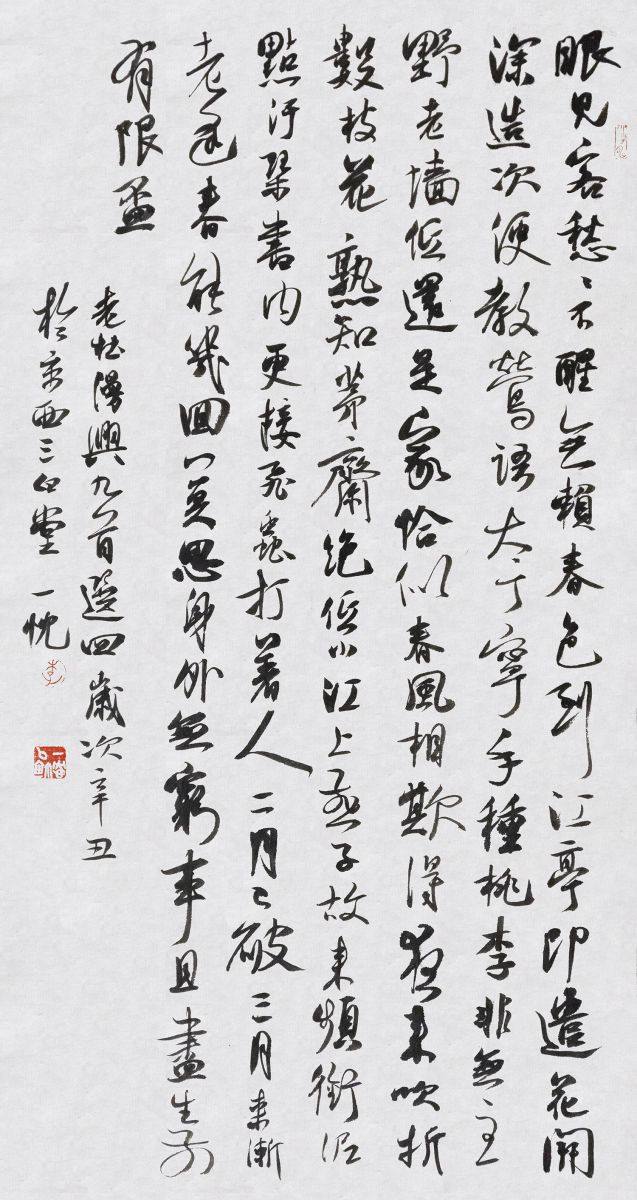 眼見客愁〻不醒無賴春色到江亭即遣花開
深造次便教鶯語大丁寧手種桃李非無主
野老墻低還是家恰似春風相欺得夜来吹折
數枝花熟知茅齋絶低小江上燕子故来頻銜泥
點汙琴書内更接飛蟲打著人二月已破三月来漸
老逢春能幾回莫思身外無窮事且盡生前
有限盃
老杜漫興九首選四歲次辛丑
於京西三堂一忱
李